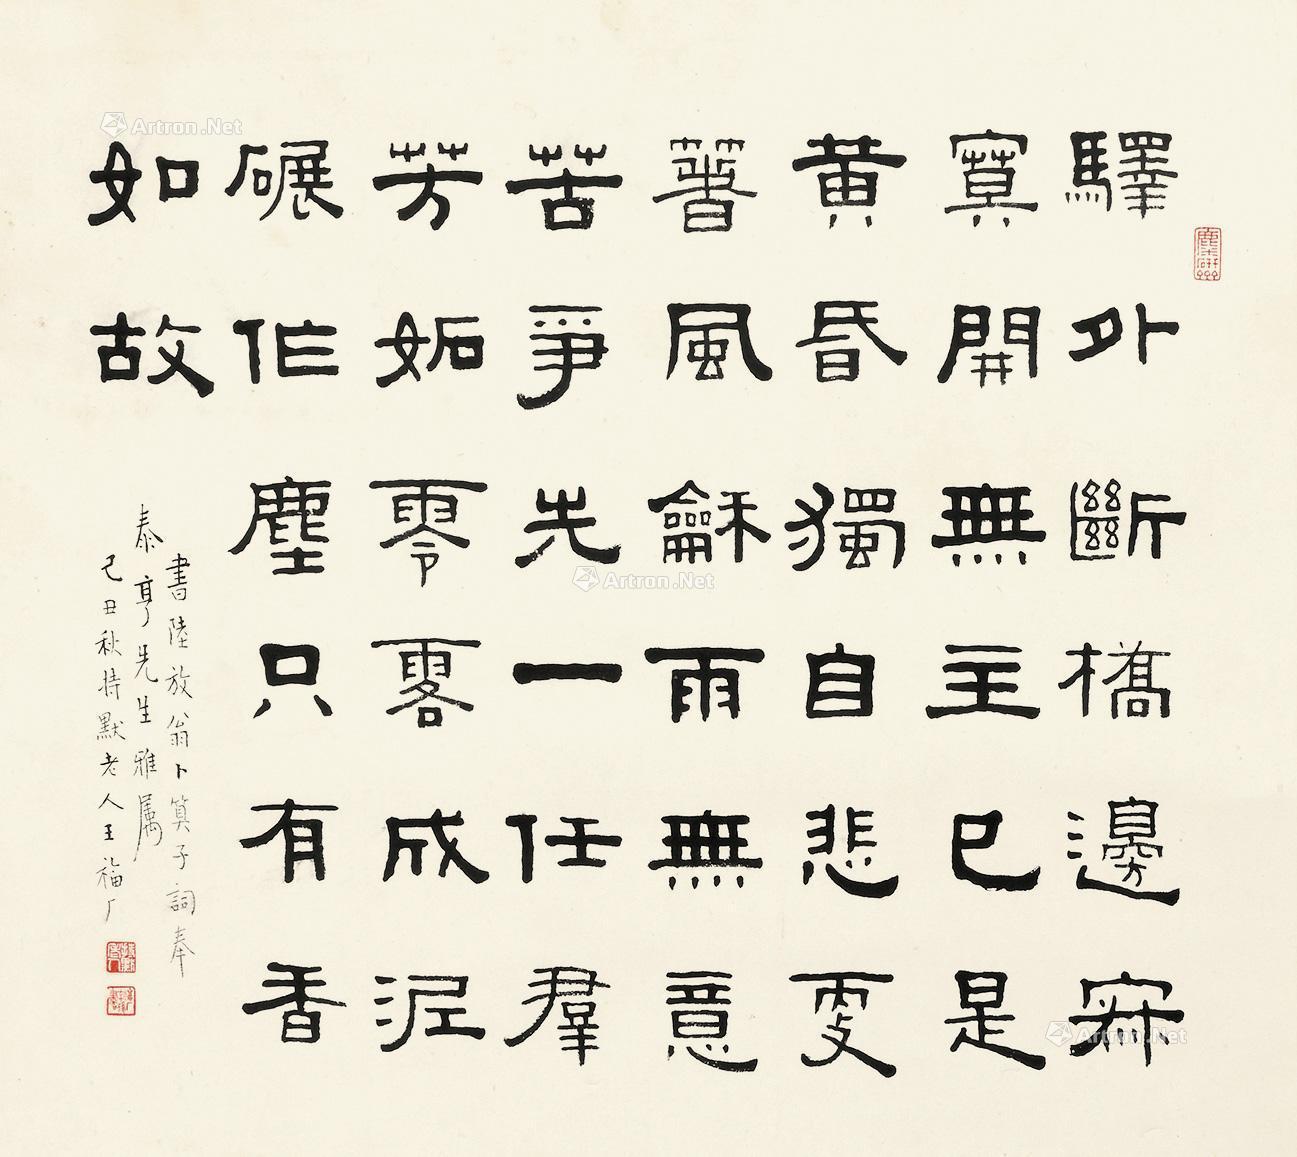 驛外斷橋邊寂
寞開無主已是
黃昏獨自悲更
著風龢雨無意
苦爭先一任羣
芳妬零零成泥
碾作塵只有香
如故
書陸放翁卜算子詞奉
泰亨先生雅屬
己丑秋持默老人王福厂
Artron.Net
Artron.Net
Artron.Net